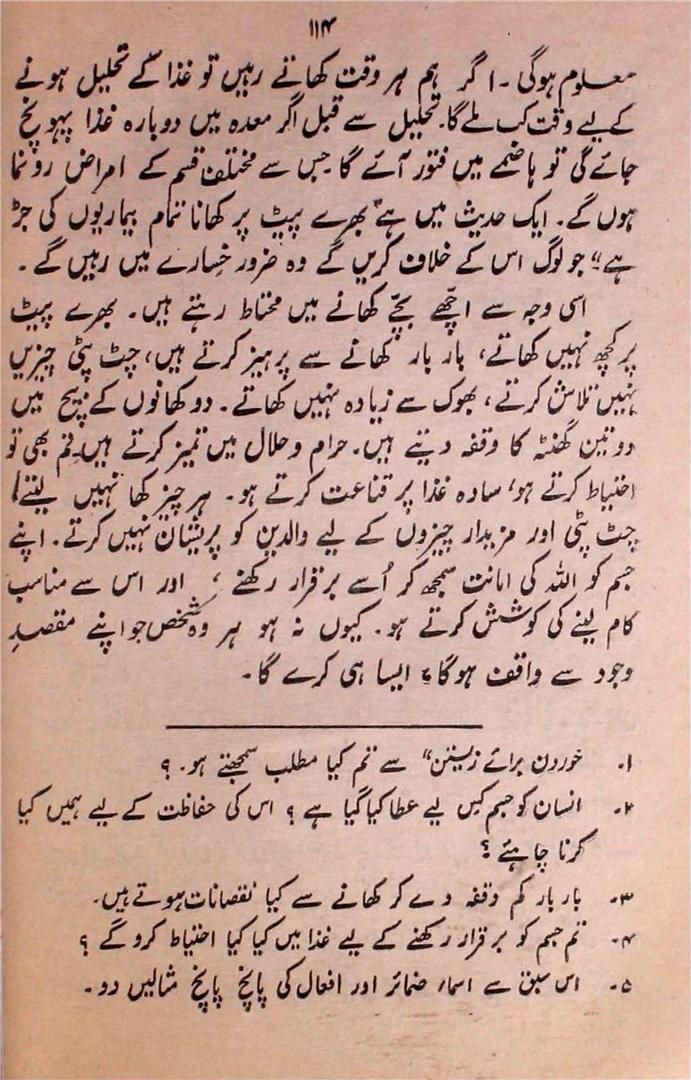 ۱۱۴
معلوم ہوگی۔ اگر ہم ہر وقت کھاتے رہیں تو غذا کے تحلیل ہونے
کے لیے وقت کب ملے گا۔ تحلیل سے قبل اگر معدہ میں دوبارہ غذا پہونچ
جائے گی تو ہاضمے میں فتور آئے گا جس سے مختلف قسم کے امراض رونما
ہوں گے۔ ایک حدیث میں ہے "بھرے پیٹ پر کھانا تمام بیماریوں کی جڑ
ہے" جو لوگ اس کے خلاف کریں گے وہ ضرور خسارے میں رہیں گے۔
اسی وجہ سے اچھے بچے کھانے میں محتاط رہتے ہیں۔ بھرے پیٹ
پر کچھ نہیں کھاتے، بار بار کھانے سے پرہیز کرتے ہیں، چٹ پٹی چیزیں
نہیں تلاش کرتے، بھوک سے زیادہ نہیں کھاتے۔ دو کھانوں کے بیچ میں
دو تین گھنٹہ کا وقفہ دیتے ہیں۔ حرام و حلال میں تمیز کرتے ہیں۔ تم بھی تو
احتیاط کرتے ہو، سادہ غذا پر قناعت کرتے ہو۔ ہر چیز کھا نہیں لیتے!
چٹ پٹی اور مزیدار چیزوں کے لیے والدین کو پریشان نہیں کرتے۔ اپنے
جسم کو اللہ کی امانت سمجھ کر اُسے برقرار رکھنے، اور اس سے مناسب
کام لینے کی کوشش کرتے ہو۔ کیوں نہ ہو ہر وہ شخص جو اپنے مقصدِ
وجود سے واقف ہوگا، ایسا ہی کرے گا۔
۱۔ خوردن برائے زیستن" سے تم کیا مطلب سمجھتے ہو۔ ؟
۲۔ انسان کو جسم کس لیے عطا کیا گیا ہے ؟ اس کی حفاظت کے لیے ہمیں کیا
کرنا چاہئے ؟
۳۔ بار بار کم وقفہ دے کر کھانے سے کیا نقصانات ہوتے ہیں۔
۴۔ تم جسم کو برقرار رکھنے کے لیے غذا میں کیا کیا احتیاط کرو گے ؟
۵۔ اس سبق سے اسماء ضمائر اور افعال کی پانچ پانچ مثالیں دو۔